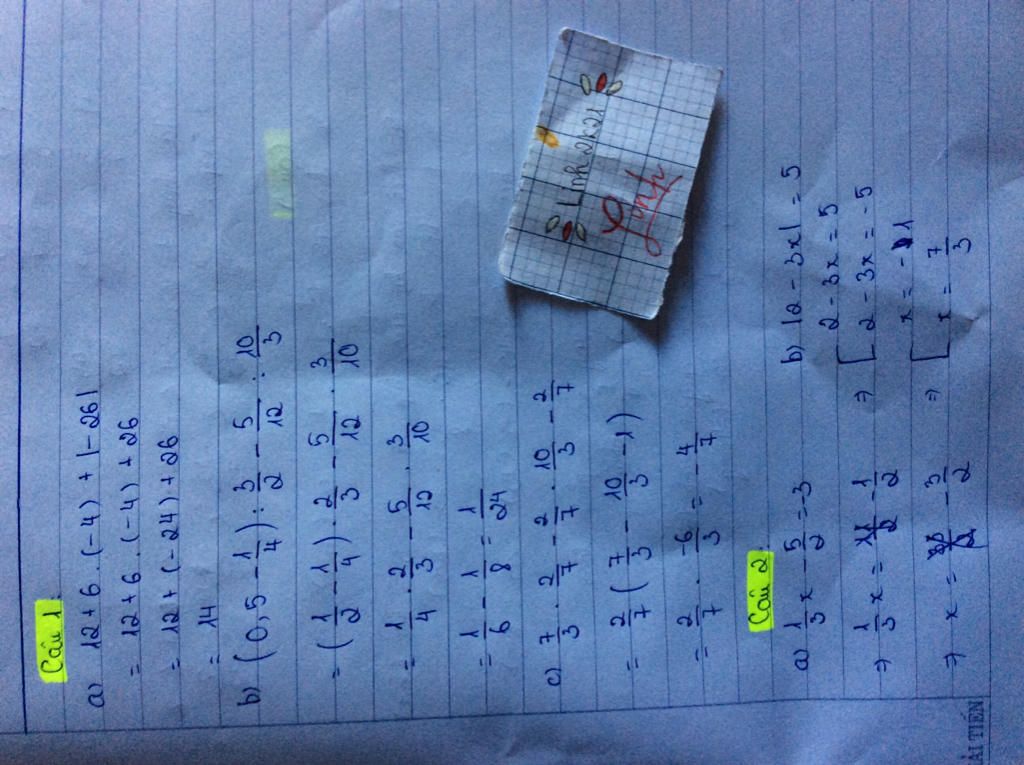 Câu 1:
a) 12 + 6 . (-4) + |-26|
= 12 + 6 . (-4) + 26
= 12 + (-24) + 26
= 14
b) (0,5 - 1/4) : 3/2 - 5/12 : 10/3
= (1/2 - 1/4) . 2/3 - 5/12 . 3/10
= 1/4 . 2/3 - 5/12 . 3/10
= 1/6 - 1/8 = 1/24
c) 7/3 . 2/7 - 2/7 . 10/3 - 2/7
= 2/7 (7/3 - 10/3 - 1)
= 2/7 . -6/3 = - 4/7
Câu 2:
a) 1/3 x - 5/2 = -3
=> 1/3 x = -1/2
=> x = -3/2
b) |2 - 3x| = 5
=> [ 2 - 3x = 5
2 - 3x = -5
=> [ x = -1
x = 7/3
Linh 2k21
Linh
ẢI TIẾN